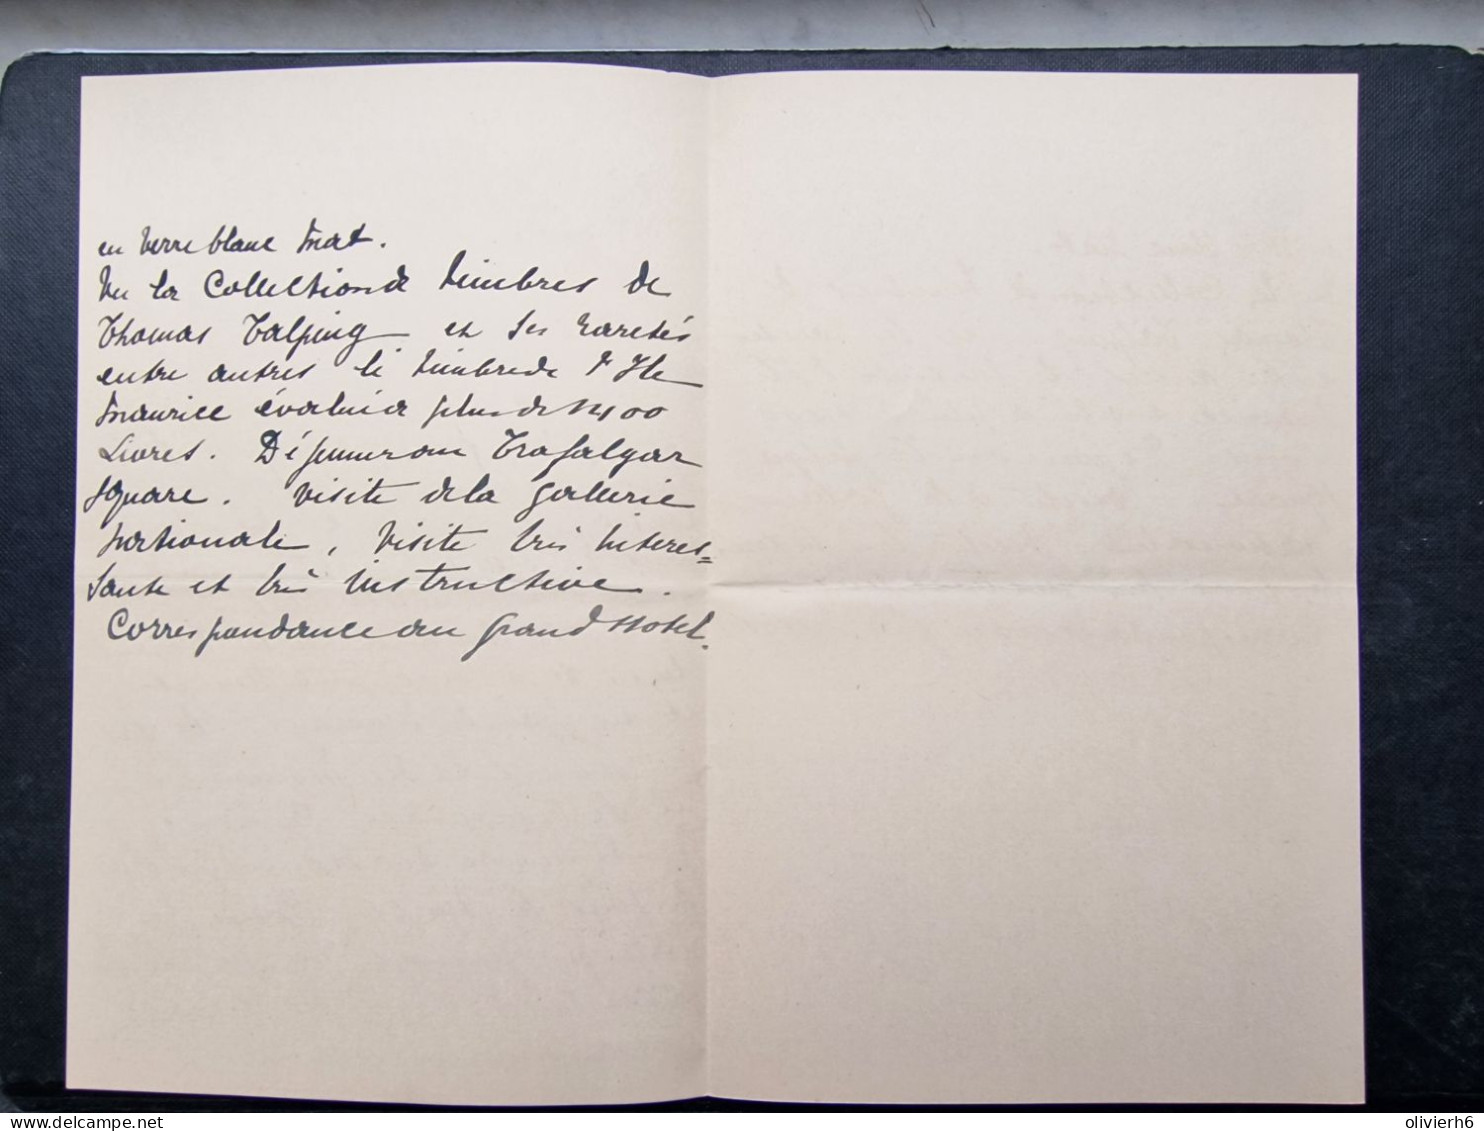 en verre blanc mat.
Vu la Collection de timbres de
Thomas Talping et ses raretés
entre autres le timbre de l'Ile
Maurice évalué à plus de 1400
Livres. Déjeuner au Trafalgar
Square. Visite de la Gallerie
nationale, visite très interes=
sante et très instructive.
Correspondance au Grand Hotel.
olivierh6